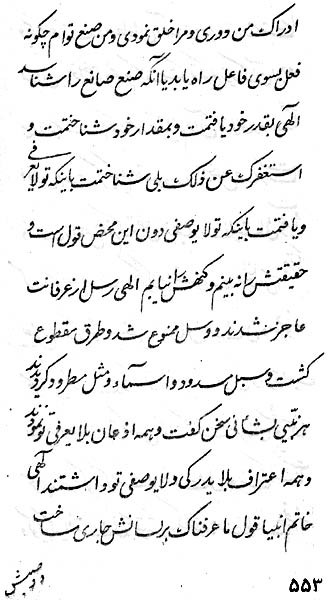 ادراک من دوری و مرا خلق نمودی و من صنع توام چگونه
فعل بسوی فاعل راه یابد یا آنکه صنع صانع را شناسد
الهی بقدر خود یافتمت و بمقدار خود شناختمت و
استغفرک عن ذلک بلی شناختمت باینکه تو لایعرفی
و یافتمت باینکه تو لا یوصفی دون این محض قول است و
حقیقتش را نه بینم و کنهش را نیابم الهی رسل از عرفانت
عاجز شدند و وسل ممنوع شد و طرق مقطوع
گشت و سبل مسدود و اسماء و مثل مطرود گردیدند
هر نبیی بشأنی سخن گفت و همه اذعان بلا یعرفی تو نمودند
و همه اعتراف بلا یدرکی و لا یوصفی تو داشتند الهی
خاتم انبیا قول ما عرفناک بر لسانش جاری ساخت
۵۵۳